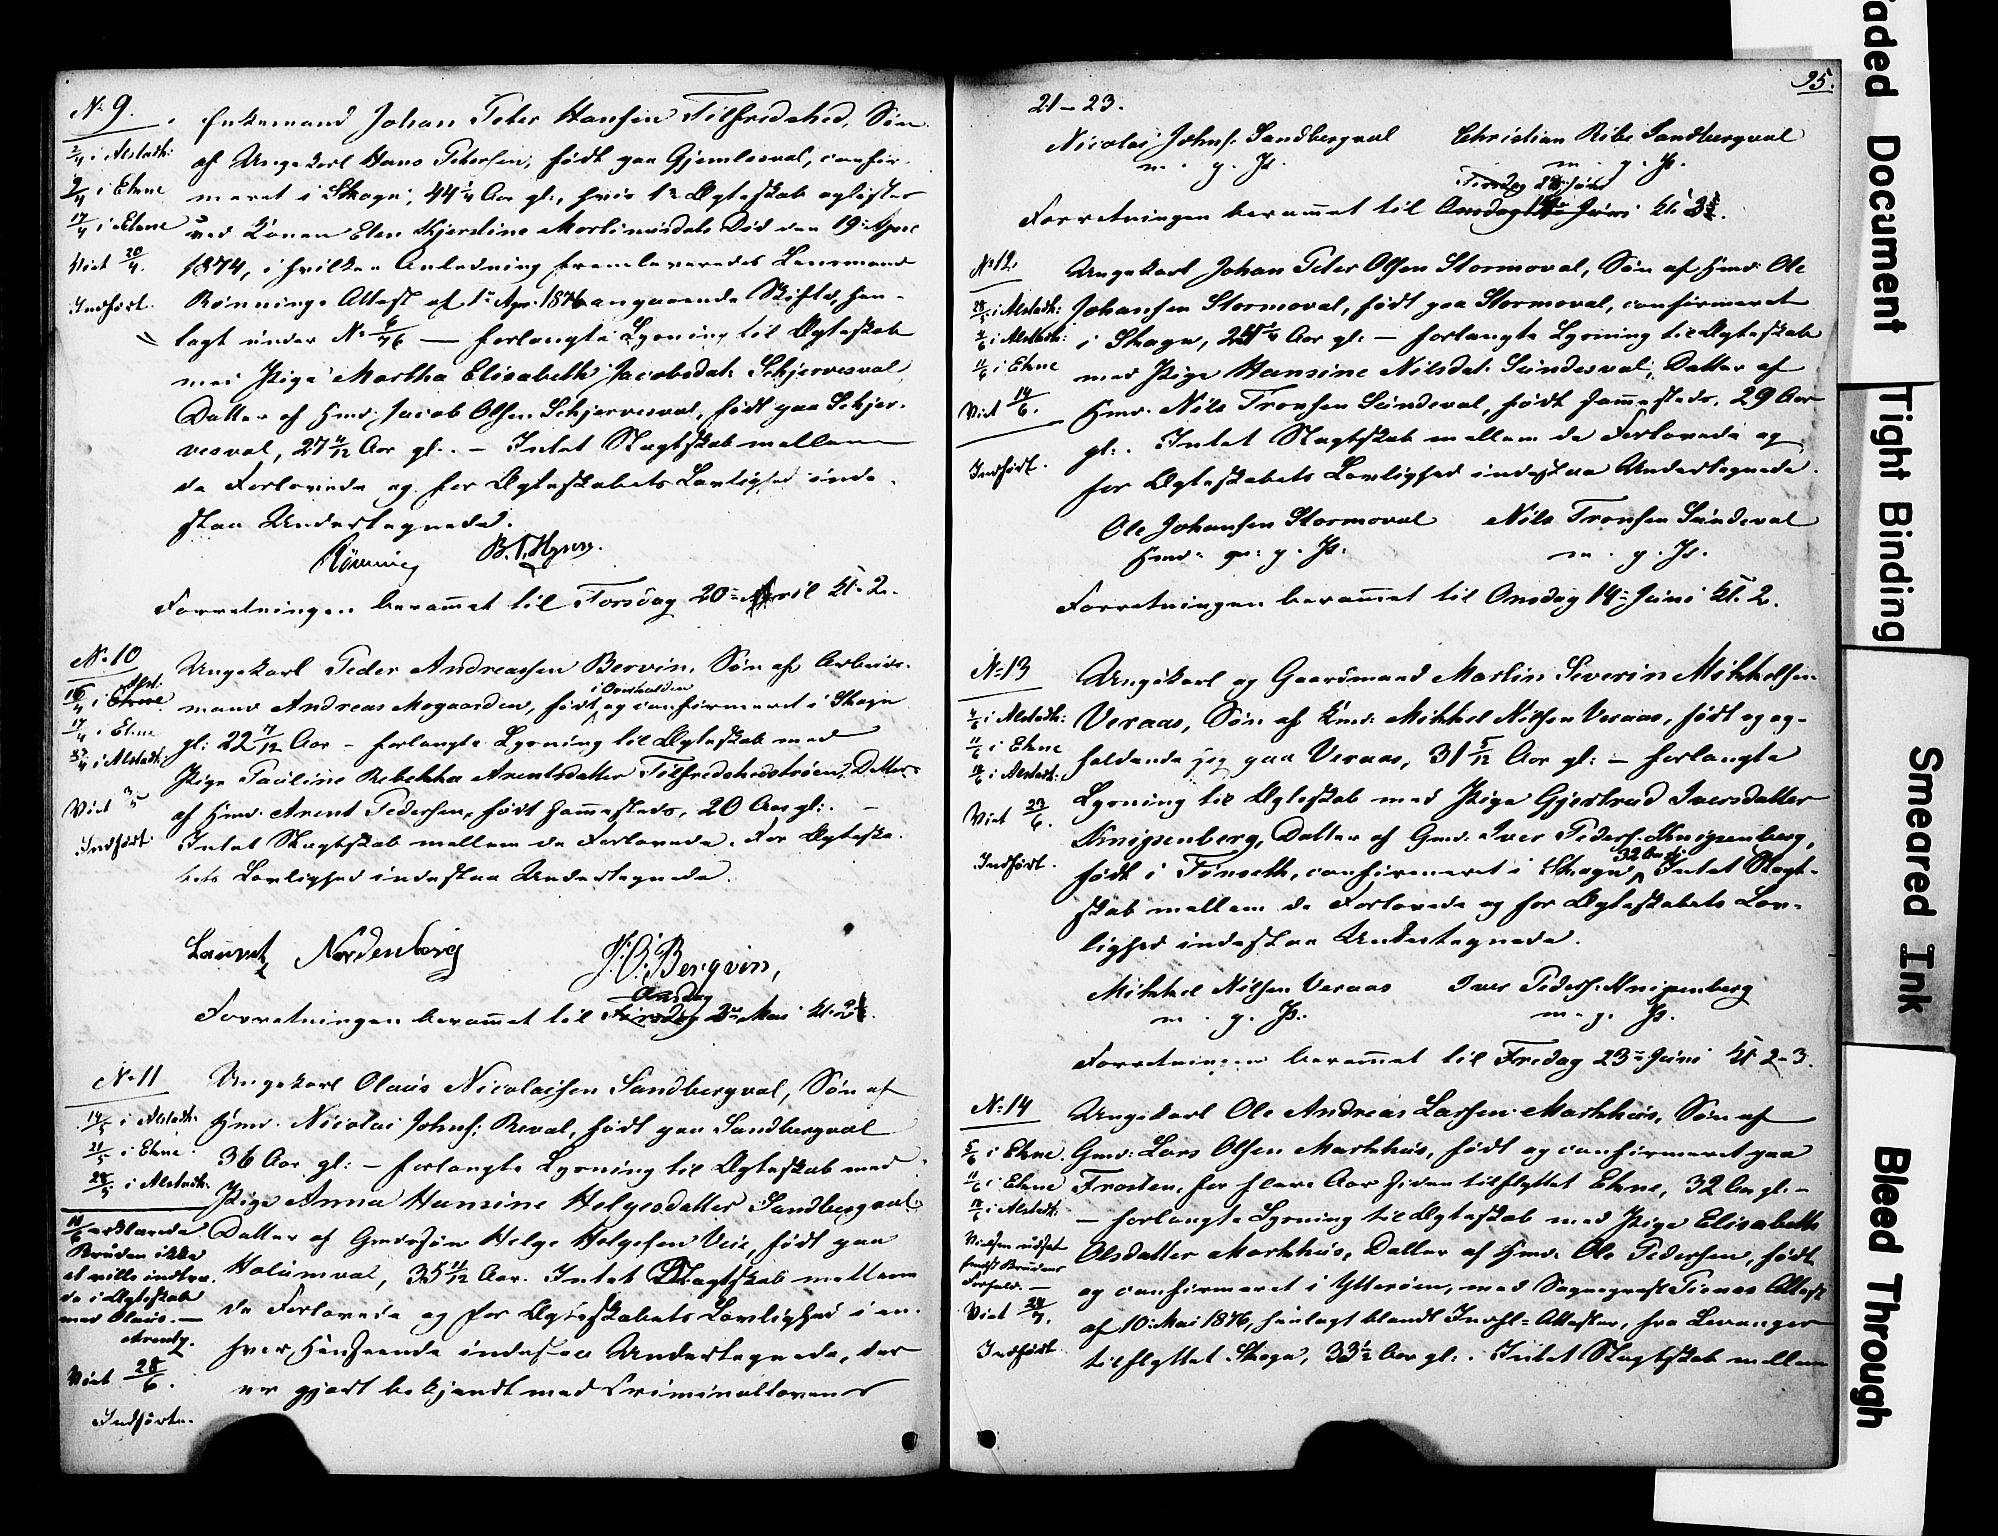 No 9.
2/4 i Alstadh:
9/4 i Ekne
17/4 i Ekne
Viet 20/4.
Indført.
Enkemand Johan Peter Hansen Tilfredshed, Søn
af Ungekarl Hans Petersen, født paa Gjemlesval, confir-
meret i Skogn, 44 1/4 Aar gl:, hvis 1ste Ægteskab opløstes
ved Konen Elen Kjerstine Mortinusdats Død den 19: April
1874, i hvilken Anledning fremleveredes Lensmand
Rønnings Attest af 1ste Apr. 1876 angaaende Skifte, hen-
lagt under No 6/76 — forlangte Lysning til Ægteskab
med Pige Martha Elisabeth Jacobsdat: Schjervesval,
Datter af Hmd: Jacob Olsen Schjervesval, født paa Schjer-
vesval, 27 11/12 Aar gl:. — Intet Slægtskab mellem
de Forlovede og for Ægteskabets Lovlighed inde-
staa Undertegnede.
Rønning B. T. Hynn.
Forretningen berammet til Torsdag 20de April Kl. 2.
No 10
16/4 i Alst. Ekne
17/4 i Ekne
i Alstadh:
Viet 3/5
Indført.
Ungekarl Peder Andreassen Bervin, Søn af Arbeids-
mand Andreas Mogaarden, født i Overhalden og confirmeret i Skogn
gl: 22 7/12 Aar – forlangte Lysning til Ægteskab med
Pige Pauline Rebekka Arentsdatter Tilfredshedstrøen, Datter
af Hmd: Arent Pedersen, født sammesteds, 20 Aar gl:. —
Intet Slægtskab mellem de Forlovede. For Ægteska-
bets Lovlighed indestaa Undertegnede.
Lauretz Nordenborg J. O. Bergvin,
Forretningen berammet til Tirsdag Onsdag 3die Mai Kl. 2
No 11
14/5 i Alstadh:
21/5 i Ekne
28/5 i Alstadh:
erklærede
Bruden ikke
at ville indtræ-
de i Ægteskab
med Olaus. —
Viet 28/6.
Indførte.
Ungekarl Olaus Nicolaisen Sandbergval, Søn af
Hmd. Nicolai Johns: Reval, født paa Sandbergval
36 Aar gl: – forlangte Lysning til Ægteskab med
Pige Anna Hansine Helgesdatter Sandbergval,
Datter af Gmdssøn Helge Helgesen Veie, født paa
Holumval, 35 11/12 Aar. Intet Slægtskab mellem
de Forlovede og for Ægteskabets Lovlighed i en-
hver Henseende indestaa Undertegnede, der
er gjort bekjendt med Criminallovens
95.
21–23.
Nicolai Johns: Sandbergval Christian Ribe Sandbergval
m. g. P. m. g. P.
Forretningen berammet til Onsdag 14de Juni Kl.
No 12.
28/5 i Alstadh:
4/6 i Alstadh:
11/6 i Ekne
Viet 14/6.
Indført.
Ungekarl Johan Peter Olsen Stormoval, Søn af Hmd: Ole
Johansen Stormoval, født paa Stormoval, confirmeret
i Skogn, Aar gl: — forlangte Lysning til Ægteskab
med Pige Hansine Nilsdat: Sundesval, Datter af
Hmd. Nils Tronsen Sundeval, født sammesteds, 29 Aar
gl:. Intet Slægtskab mellem de Forlovede og
for Ægteskabets Lovlighed indestaa Undertegnede.
Ole Johansen Stormoval Nils Tronsen Sundeval
Hmd: m. g. P. m. g. P.
Forretningen berammet til Onsdag 14de Juni Kl. 2.
No 13
4/6 i Alstadh:
11/6 i Ekne
18/6 i Alstadh:
Viet 23/6.
Indført.
Ungekarl og Gaardmand Martin Severin Mikkelsen
Veraas, Søn af Kmd: Mikkel Nilsen Veraas, født og op-
holdende sig paa Veraas, 31 5/12 Aar gl: – forlangte
Lysning til Ægteskab med Pige Gjertrud Iversdatter
Knipenberg, Datter af Gmd: Iver Peders: Knipenberg,
født i Tønseth, confirmeret i Skogn, 32 Aar gl: Intet Slægt-
skab mellem de Forlovede og for Ægteskabets Lov-
lighed indestaa Undertegnede.
Mikkel Nilsen Veraas Iver Peders: Knipenberg
m. g. P. m. g. P.
Forretningen berammet til Fredag 23de Juni Kl. 2–3.
No 14
5/6 i Ekne
11/6 i Ekne
18/6 i Alstadh:
Vielsen udsat
Brudens
Forfald. —
Viet 28/7.
Indført
Ungekarl Ole Andreas Larsen Markhus, Søn af
Gmd: Lars Olsen Markhus, født og confirmeret paa
Frosten, for flere Aar siden tilflyttet Ekne, 32 Aar gl. –
– forlangte Lysning til Ægteskab med Pige Elisabeth
Olsdatter Markhus, Datter af Hmd: Ole Pedersen, født
og confirmeret i Ytterøen, med Sognepræst Attest
af 10: Mai 1876, henlagt blandt Indfl: Attester, fra Levanger
tilflyttet Skogn, 33 1/2 Aar gl:. Intet Slægtskab mellem
Faded Document
Tight Binding
Smeared Ink
Bleed Through